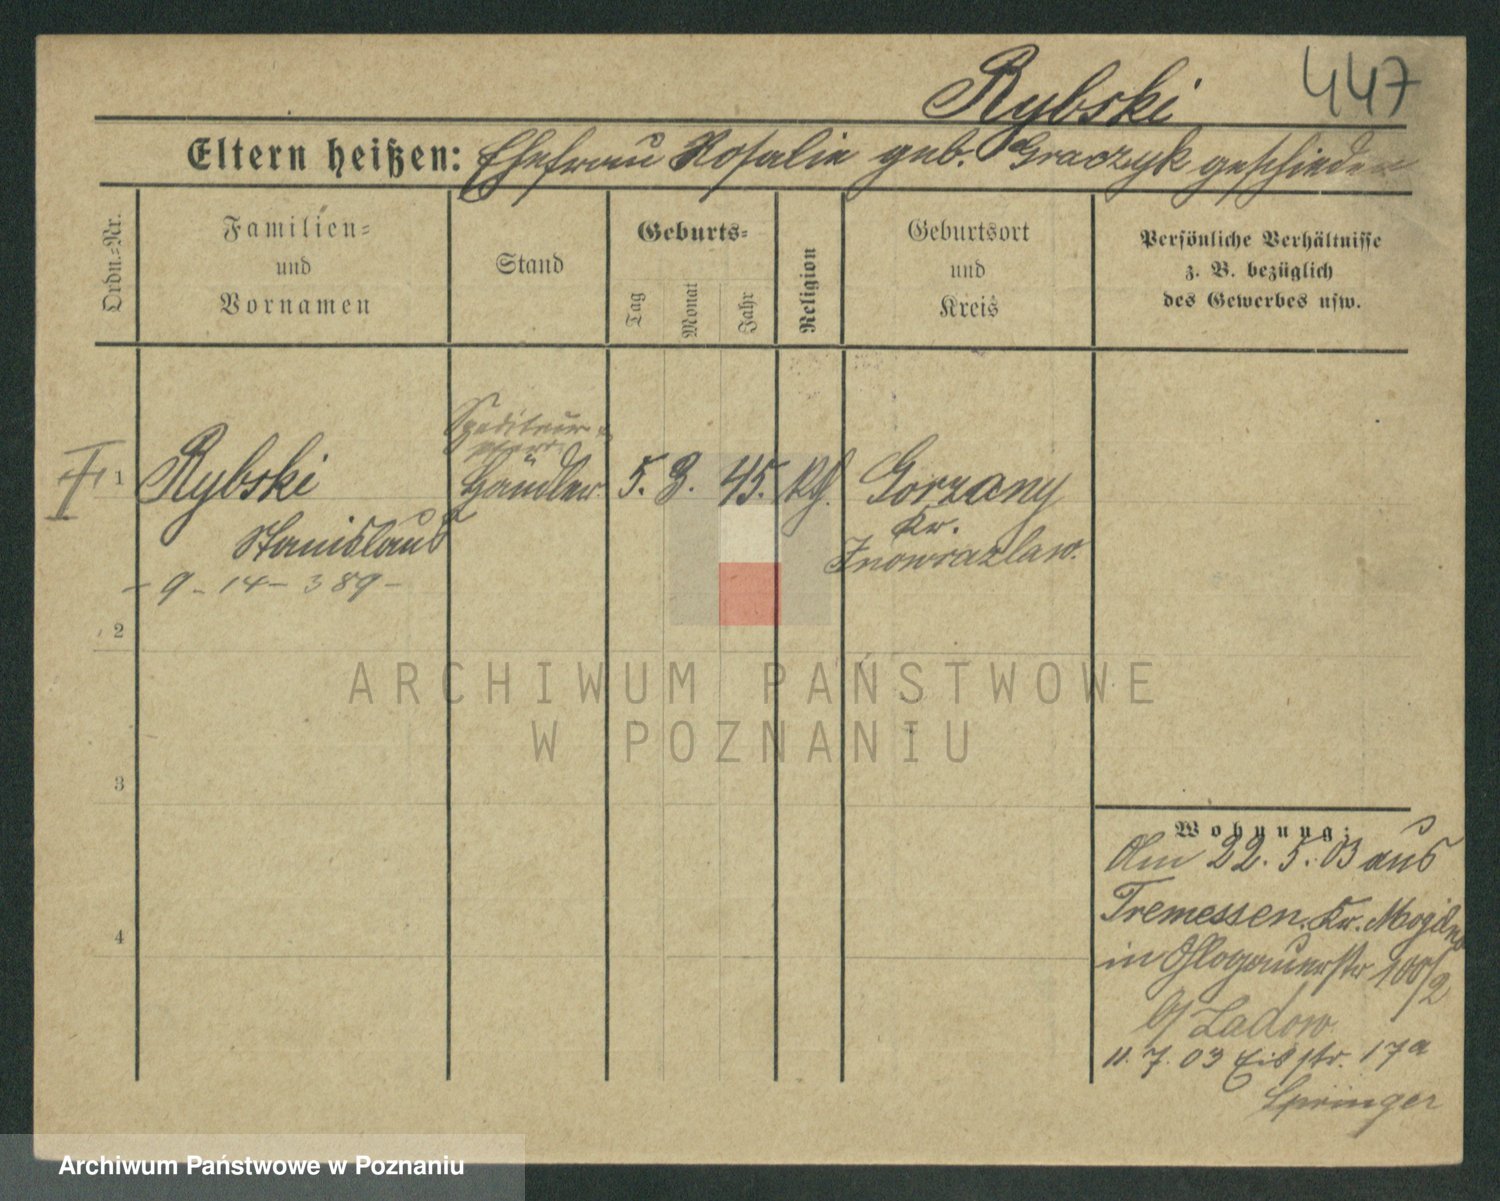 Rybski
447
Eltern heißen: Ehefrau Rosalie geb. Graczyk geschieden
Ordn.=Nr.
Familien=
und
Vornamen
Stand
Geburts=
Tag
Monat
Jahr
Religion
Geburtsort
und
Kreis
Persönliche Verhältnisse
z. B. bezüglich
des Gewerbes usw.
Spediteur
II 1 Rybski Händler 5. 3. 45. Gorzany
Stanislaus
Kr.
Inowrazlaw.
- 9 - 14 - 389 -
2
3
4
Wohnung:
Am 22. 5. 03 aus
Tremessen. Kr. Mogilno
in Glogauerstr 100/2
b/ Ladow
11. 7. 03 Eisstr. 17a
Springer
ARCHIWUM PAŃSTWOWE
W POZNANIU
Archiwum Państwowe w Poznaniu